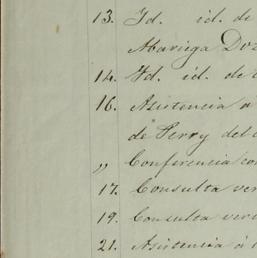 13. Id. id. de
Abariega Doz
14. Id. id. de
16. Asistencia a
de Perry del
„ Conferencia con
17. Consulta ver
19. Consulta ver
21. Asistencia á